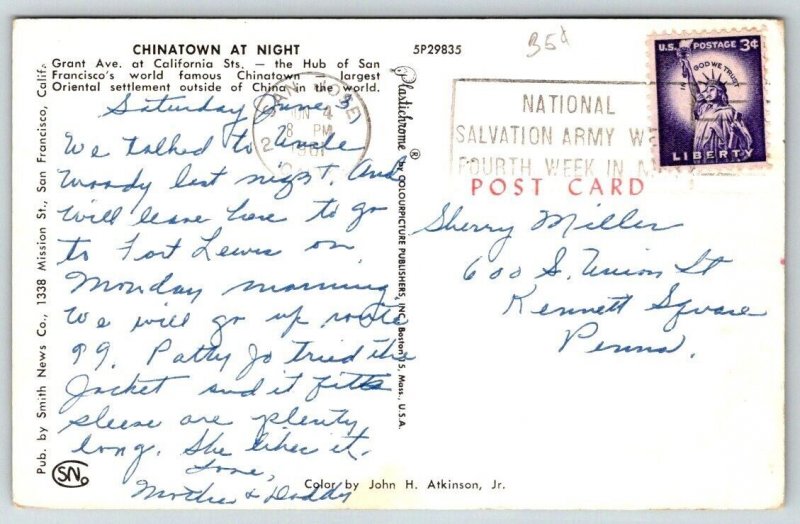 CHINATOWN AT NIGHT
Grant Ave. at California Sts. — the Hub of San
Francisco's world famous Chinatown — largest
Oriental settlement outside of China in the world.
5P29835
35¢
Saturday June 3
We talked to Uncle
Woody last night. And
will leave here to go
to Fort Lewis on
Monday morning
We will go up route
99. Patty Jo tried the
Jacket and it fitts
sleese are plenty
long. She likes it.
Love,
Mother & Daddy
Pub. by Smith News Co., 1338 Mission St., San Francisco, Calif.
SN
Co
Plastichrome ® by COLOURPICTURE PUBLISHERS, INC., Boston 15, Mass., U.S.A.
SAN JOSE
JUN 4
8 PM
1961
NATIONAL
SALVATION ARMY
FOURTH WEEK IN
U.S. POSTAGE 3¢
IN GOD WE TRUST
LIBERTY
POST CARD
Sherry Miller
600 S. Union St
Kennett Square
Penna.
Color by John H. Atkinson, Jr.